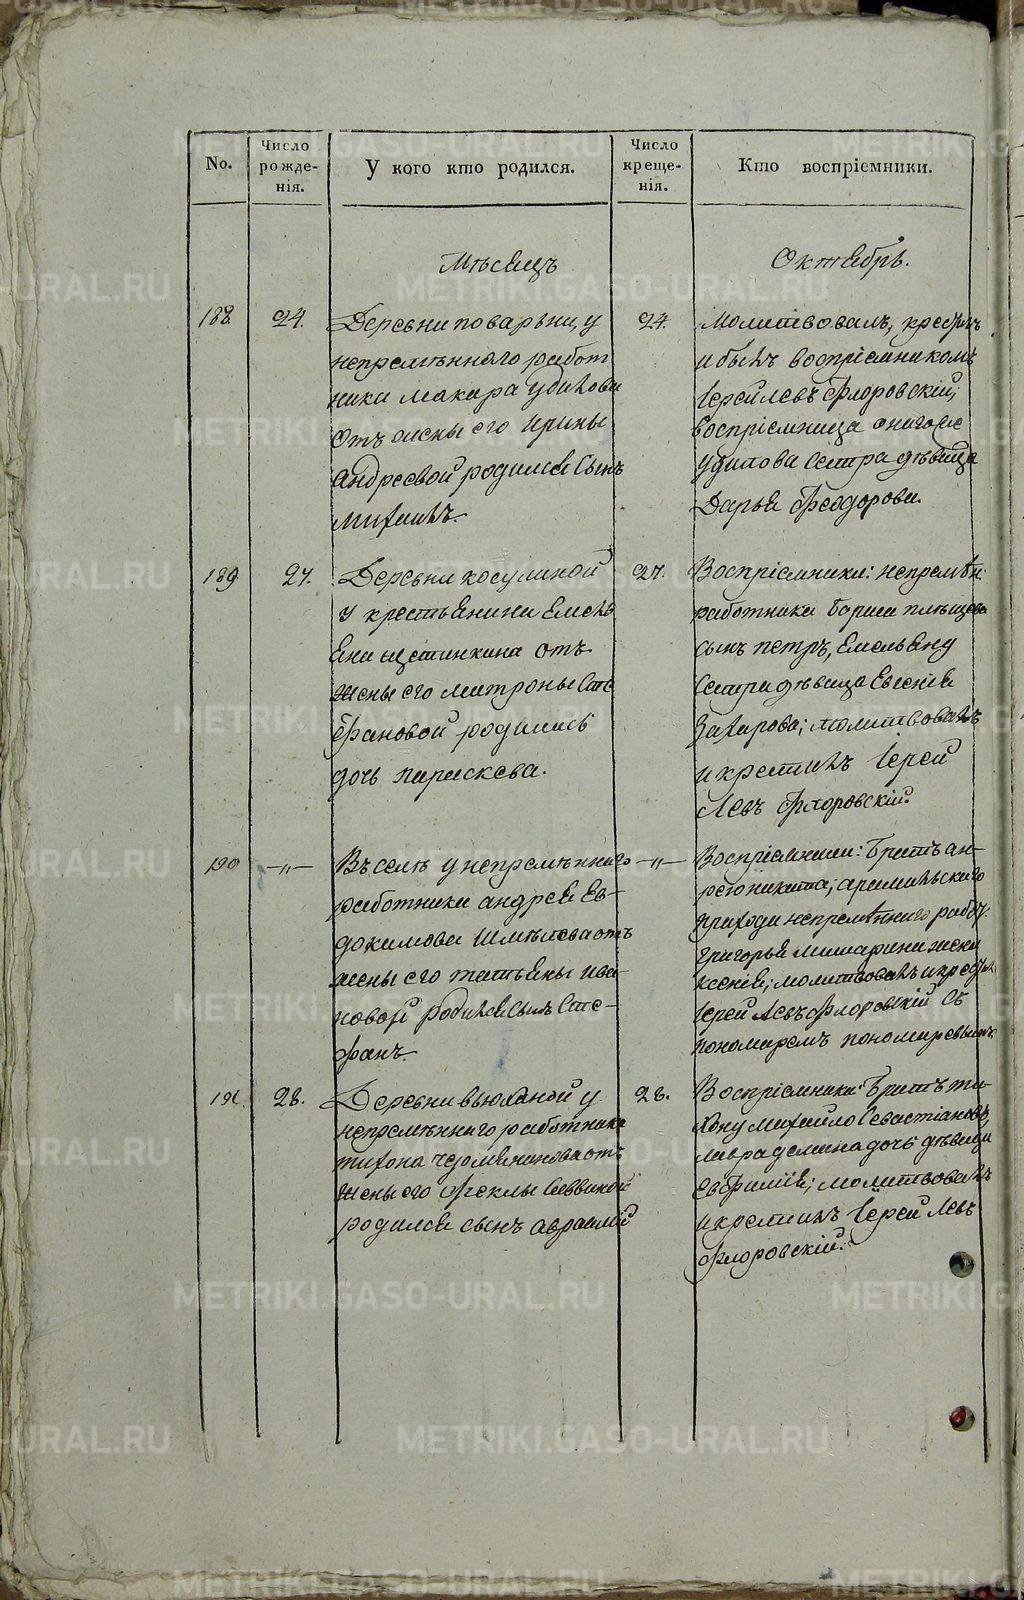 No.
Число рожде- нія.
У кого кто родился.
Число креще- нія.
Кто воспріемники.
Мѣсяцъ
Октябрь.
188.
24.
Деревни поварьни, у
непремѣннаго работ
ника макара Удилова
отъ жены его Ирины
андреевой родился Сынъ
михаилъ.
24.
Молитвовалъ, крестилъ
и былъ воспріемникомъ
Іерей левъ Флоровскій;
воспріемница онагоже
Удилова Сестра дѣвица
Дарья Феодорова.
189
27.
Деревни косулиной
у крестьянина Емель
яна щетинкина отъ
жены его матроны Сте
фановой родилась
дочь параскева.
27.
Воспріемники: непремѣн:
работника бориса плѣщева
сынъ петръ, Емельяну
Сестра дѣвица Евгенія
Захарова; молитвовалъ
и крестилъ Іерей
Левъ Флоровскій.
190
—„—
Въ селѣ у непремѣннаго
работника андрея Ев-
докимова Шмѣлева отъ
жены его татьяны ива-
новой родился сынъ Сте-
фанъ.
—„—
Воспріемники: Братъ ан-
рею никита; арамильскаго
прихода непремѣннаго работ:
григорья мишарина жена
ксенія; молитвовалъ и крестилъ
Іерей Левъ Флоровскій съ
пономаремъ пономаревымъ.
191.
28.
Деревни вьюхиной у
непремѣннаго работника
тихона чермянинова отъ
жены его Феклы Саввиной
родился сынъ авраамій
28.
Воспріемники: Братъ ти-
хону михайло Севастіановъ,
лавра демина дочь дѣвица
Евфимія; молитвовалъ
и крестилъ Іерей Левъ
Флоровскій.
METRIKI.GASO-URAL.RU